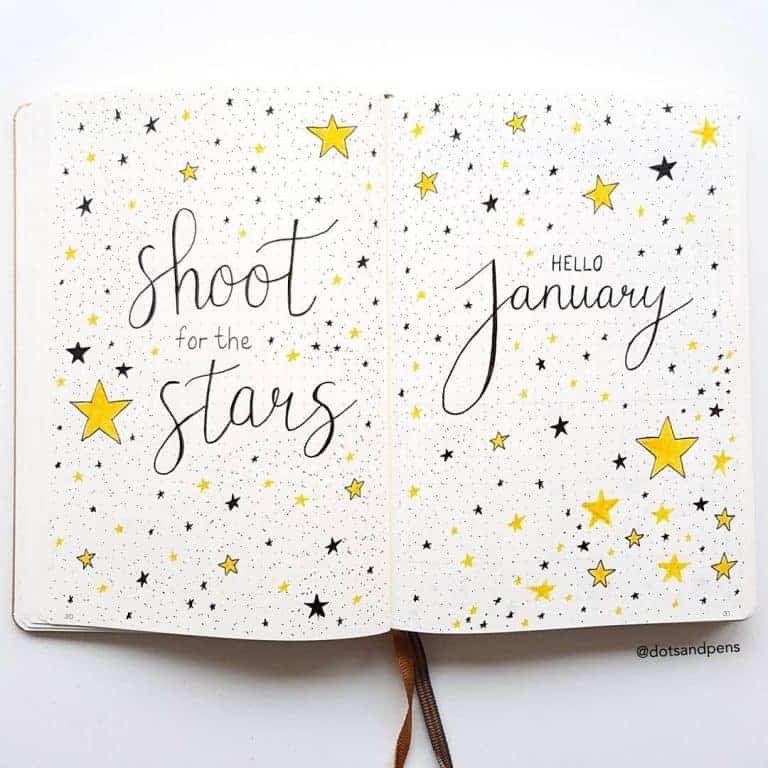 shoot
for the
stars
30
HELLO
january
31
@dotsandpens